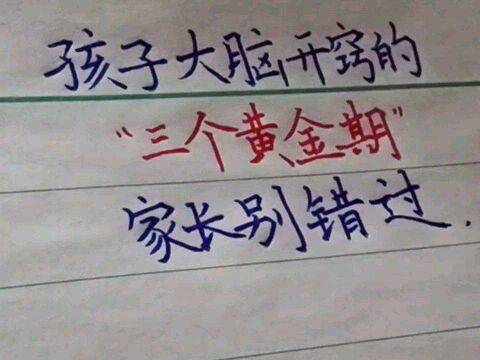 孩子大脑开窍的
“三个黄金期”
家长别错过.